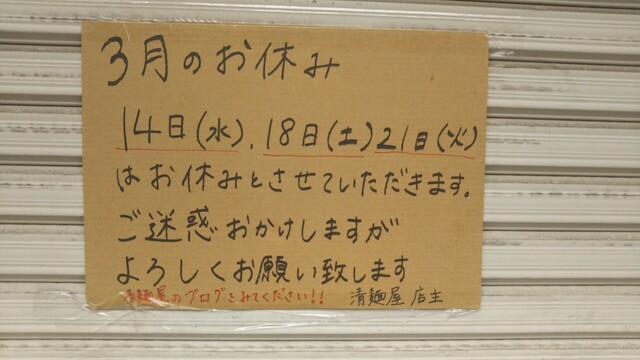 3月のお休み
14日(水)、18日(土)21日(火)
はお休みとさせていただきます。
ご迷惑おかけしますが
よろしくお願い致します
清麺屋のブログをみてください!! 清麺屋 店主